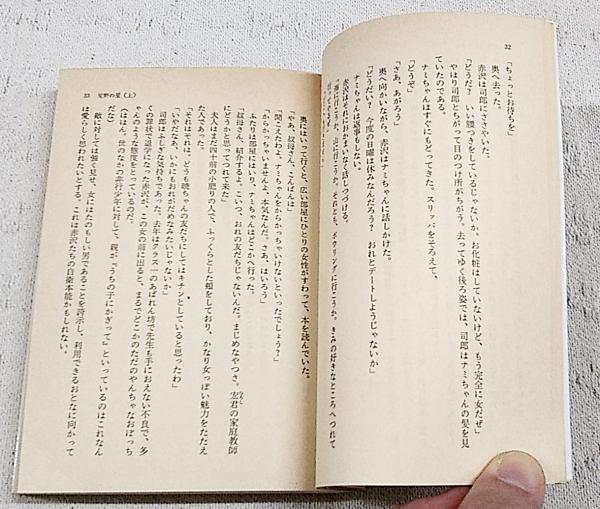 32
「ちょっとお待ちを」
奥へ去った。
赤沢は司郎にささやいた。
「どうだ？ いい腰つきをしているじゃないか。お化粧はしていないけど、もう完全に女だぜ」
やはり司郎とちがって目のつけ所がちがう。去ってゆく後ろ姿では、司郎はナミちゃんの髪を見
ていたのである。
ナミちゃんはすぐにもどってきた。スリッパをそろえて、
「どうぞ」
「さあ、あがろう」
奥へ向かいながら、赤沢はナミちゃんに話しかけた。
「どうだい？ 今度の日曜は休みなんだろう？ おれとデートしようじゃないか」
ナミちゃんは返事もしない。
赤沢はそれにおかまいなく話しつづける。
「海に行こうか。山に行こうか。それとも、ボウリングに行こうか。きみの好きなところへつれて
33 星野の星（上）
奥にはいって行くと、広い部屋にひとりの女性がすわって、本を読んでいた。
「やあ、叔母さん、こんばんは」
「聞こえたわよ。ナミちゃんをからかっちゃいけないといったでしょう？」
「からかっちゃいませんよ。本気なんだ。さあ、はいろう」
ふたりは部屋にはいり、ナミちゃんはどこかへ行った。
「叔母さん、紹介するよ。こいつ、おれの友だちじゃないんだ。まじめなやつさ。宏君の家庭教師
にどうかと思ってつれて来た」
夫人はまだ四十前の小肥りの人で、ふっくらとした頬をしており、かなり女っぽい魅力をたたえ
た人であった。
「それはそれは。どうも暁ちゃんの友だちにしてはキチンとしていると思ったわ」
「いやだなあ、いかにもおれがだめなみたいじゃないか」
司郎はふしぎな気持ちだった。去年はクラス一のあばれん坊で先生も手におえない不良で、多
くの罪状で退学になった赤沢が、この女の前に出ると、まるでどこかのただのやんちゃなおぼっち
ゃんのような態度をとっているのだ。
（ははん、世のなかの非行少年に対して、親が『うちの子にかぎって』といっているのはこれなん
だな）
敵に対しては強く見せ、女にたのもしい男であることを誇示し、利用できるおとなに向かって
は愛らしく思われたいとする。これは赤沢たちの自衛本能かもしれない。